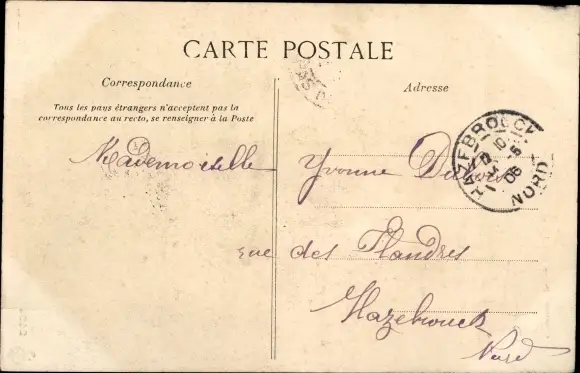 CARTE POSTALE
Correspondance
Adresse
Tous les pays étrangers n'acceptent pas la
correspondance au recto, se renseigner à la Poste
HAZEBROUCK
NORD
Mademoiselle Yvonne
rue des Flandres
Hazebrouck
Nord